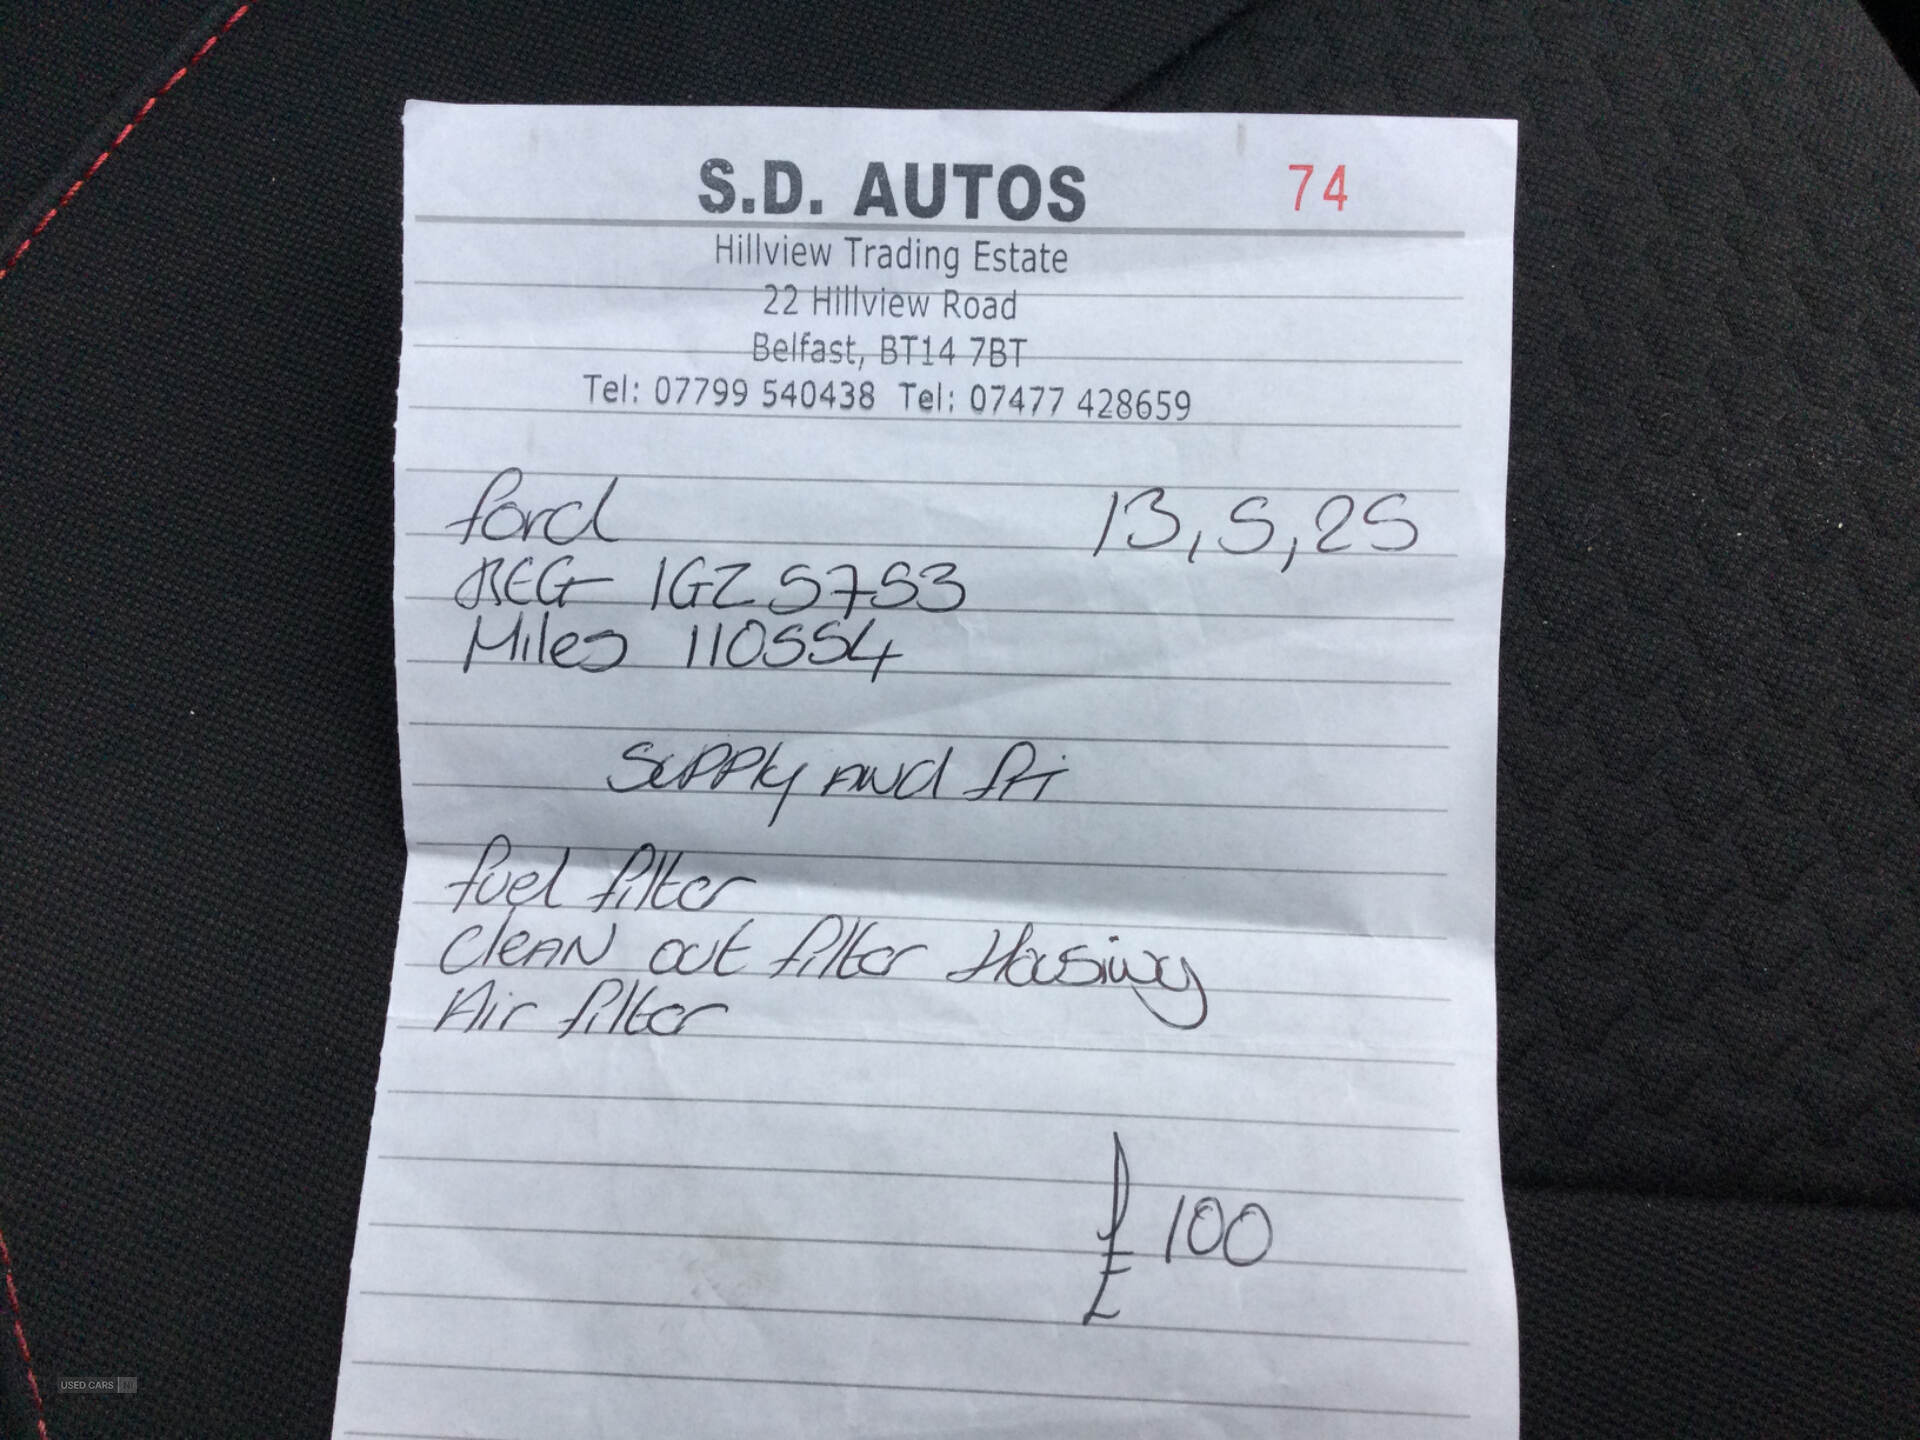 S.D. AUTOS 74
Hillview Trading Estate
22 Hillview Road
Belfast, BT14 7BT
Tel: 07799 540438 Tel: 07477 428659
ford 13,5,25
REG IGZ 5753
Miles 110554
Supply and fit
fuel filter
Clean out filter Housing
Air filter
£100
USED CARS NI